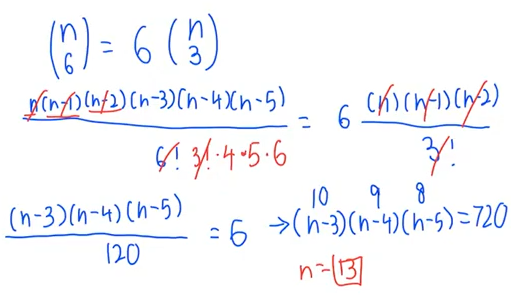 (n 6) = 6 (n 3)
n(n-1)(n-2)(n-3)(n-4)(n-5) / 6! 3!·4·5·6 = 6 (n)(n-1)(n-2) / 3!
(n-3)(n-4)(n-5) / 120 = 6
10 9 8
→(n-3)(n-4)(n-5)=720
n=13